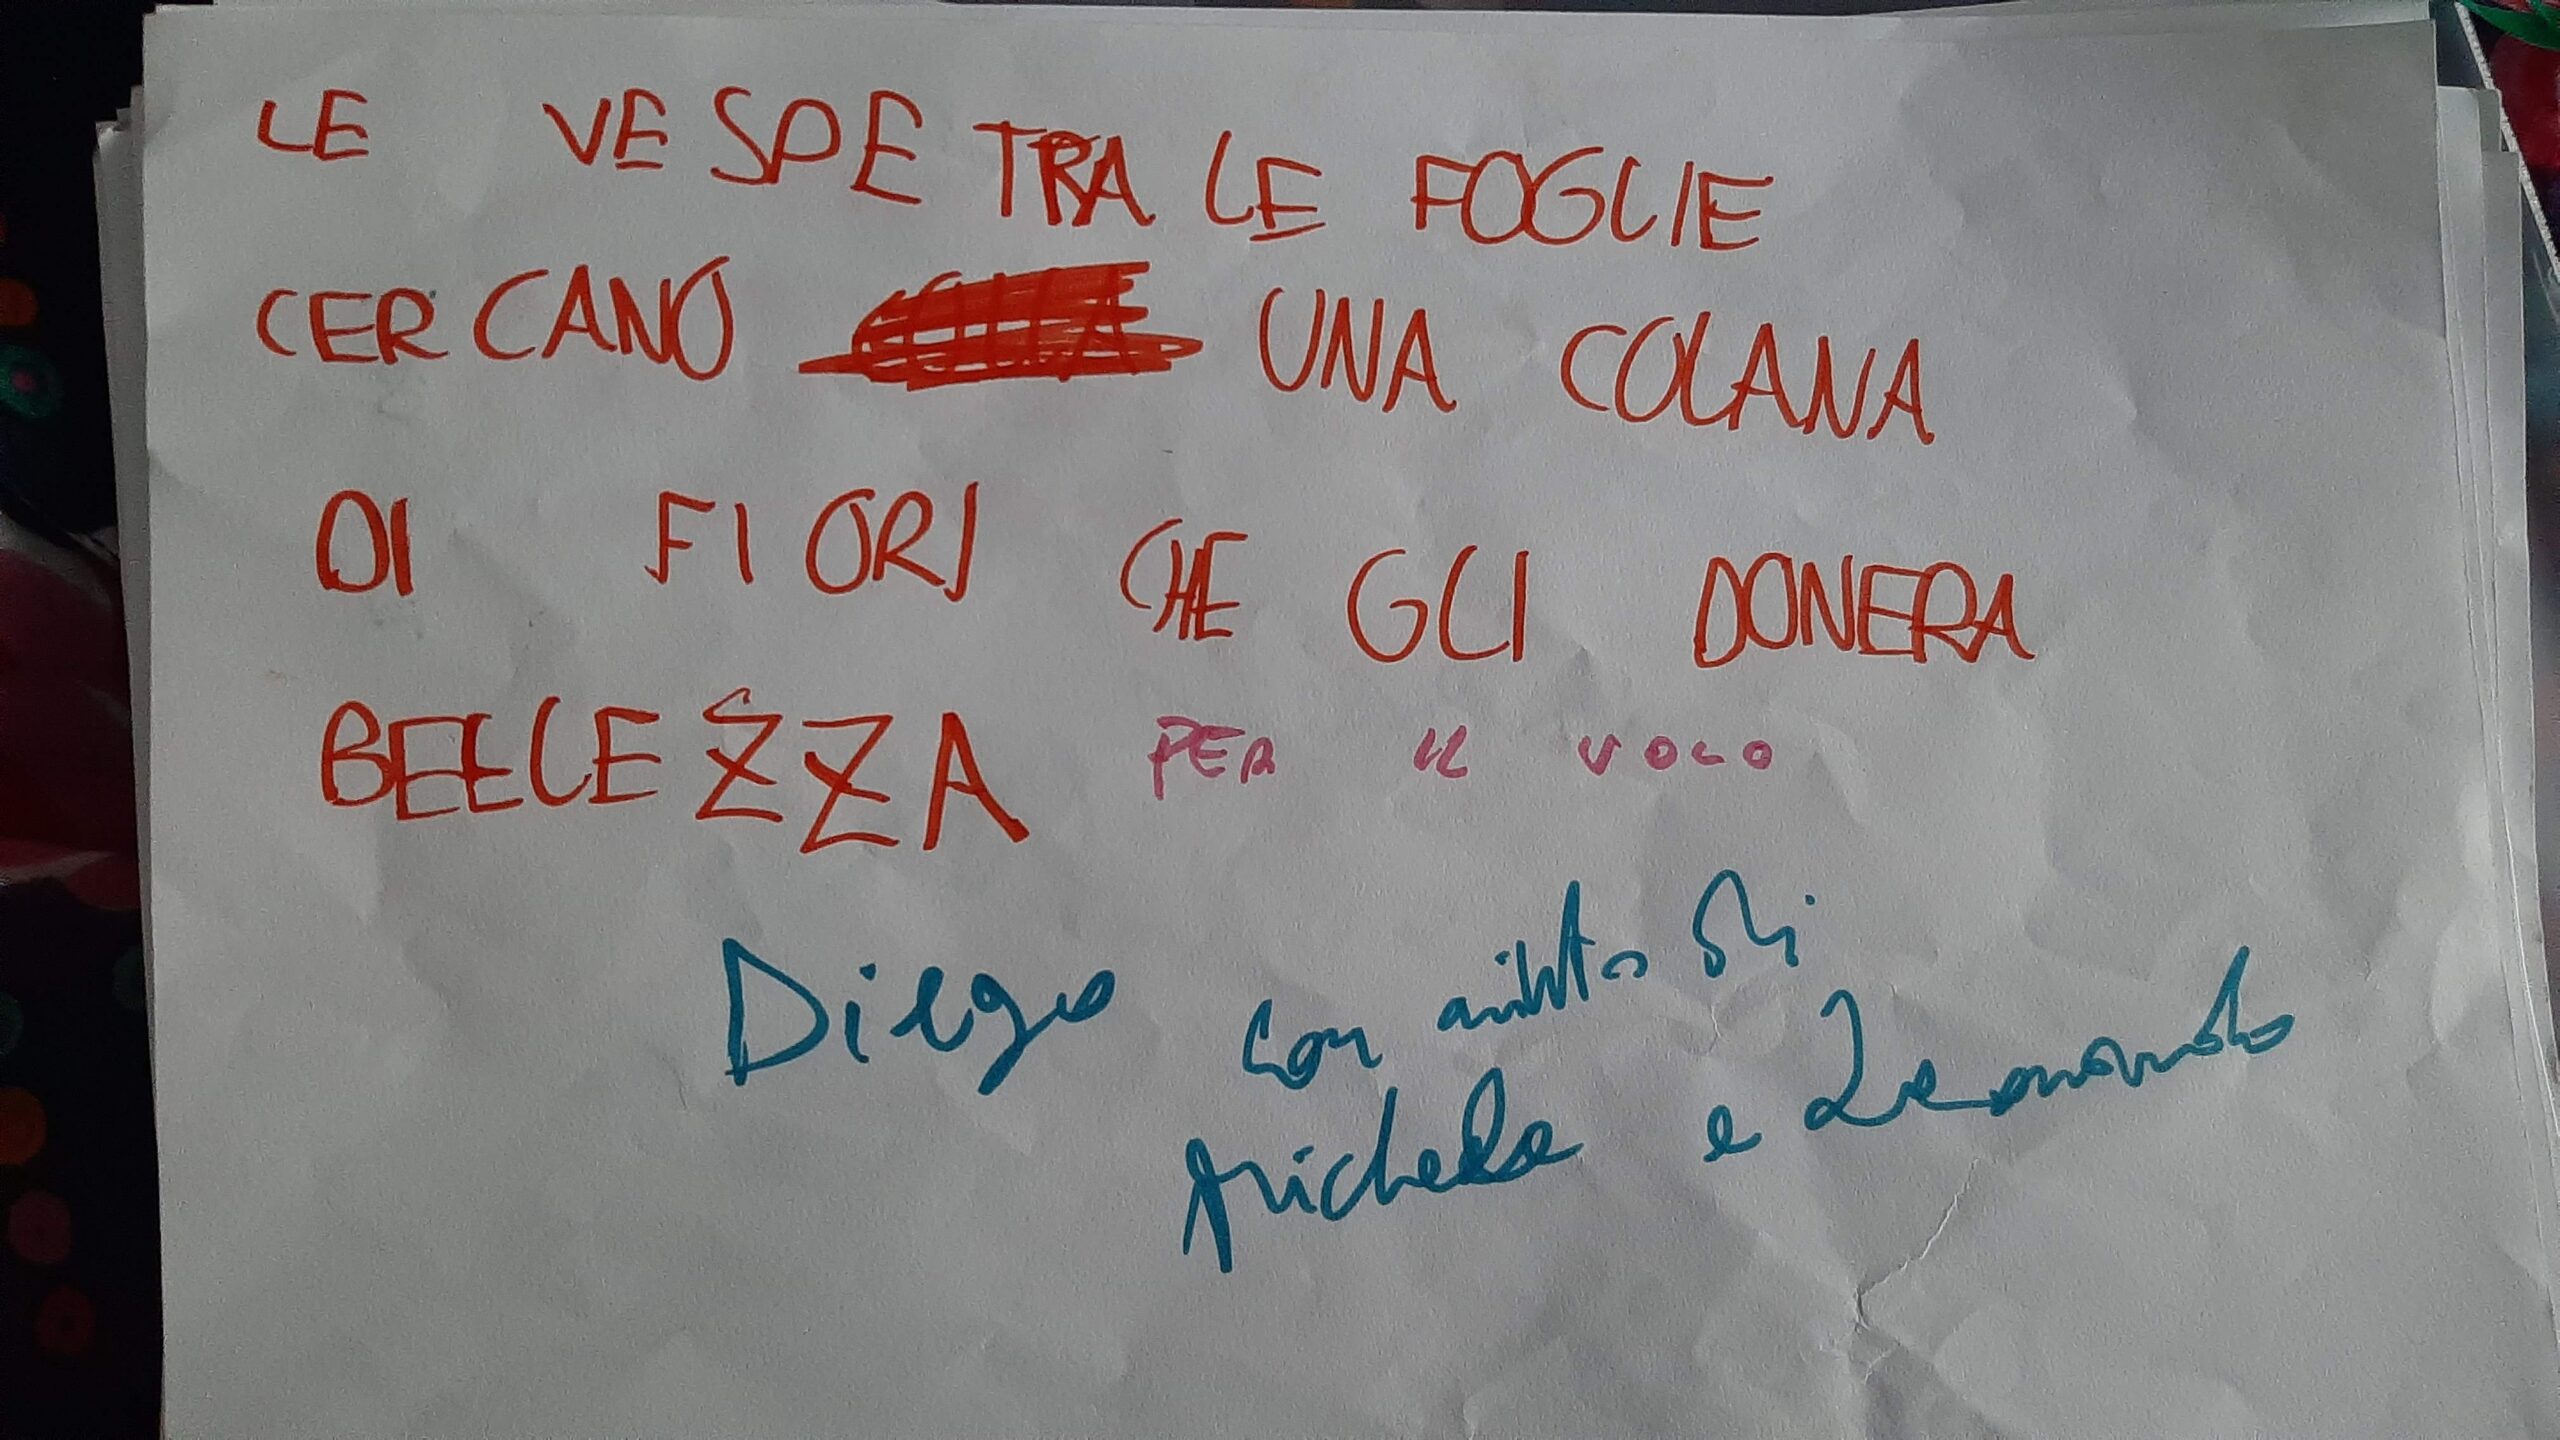 LE VESPE TRA LE FOGLIE
CERCANO UNA COLANA
DI FIORI CHE GLI DONERA
BELLEZZA PER IL VOLO
Diego con aiuto di
Michele e Leonardo